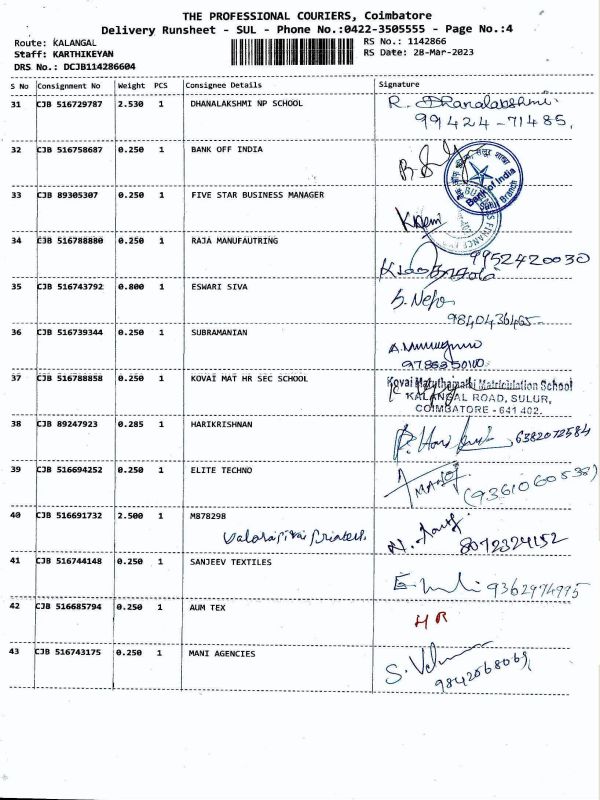 THE PROFESSIONAL COURIERS, Coimbatore
Delivery Runsheet - SUL - Phone No.:0422-3505555 - Page No.:4
Route: KALANGAL
RS No.: 1142866
Staff: KARTHIKEYAN
RS Date: 28-Mar-2023
DRS No.: DCJB114286604
S No Consignment No Weight PCS Consignee Details Signature
31 CJB 516729787 2.530 1 DHANALAKSHMI NP SCHOOL R. Dhanalakshmi
99424-71485.
32 CJB 516758687 0.250 1 BANK OFF INDIA
Bank of India
33 CJB 89305307 0.250 1 FIVE STAR BUSINESS MANAGER
34 CJB 516788880 0.250 1 RAJA MANUFAUTRING 9952420030
35 CJB 516743792 0.800 1 ESWARI SIVA
9840436465
36 CJB 516739344 0.250 1 SUBRAMANIAN
37 CJB 516788858 0.250 1 KOVAI MAT HR SEC SCHOOL Kovai Matuthamalai Matriculation School
KALANGAL ROAD, SULUR,
COIMBATORE - 641 402.
38 CJB 89247923 0.285 1 HARIKRISHNAN 6382072584
39 CJB 516694252 0.250 1 ELITE TECHNO
40 CJB 516691732 2.500 1 M878298
8072324152
41 CJB 516744148 0.250 1 SANJEEV TEXTILES 9362974975
42 CJB 516685794 0.250 1 AUM TEX HR
43 CJB 516743175 0.250 1 MANI AGENCIES
9842068069